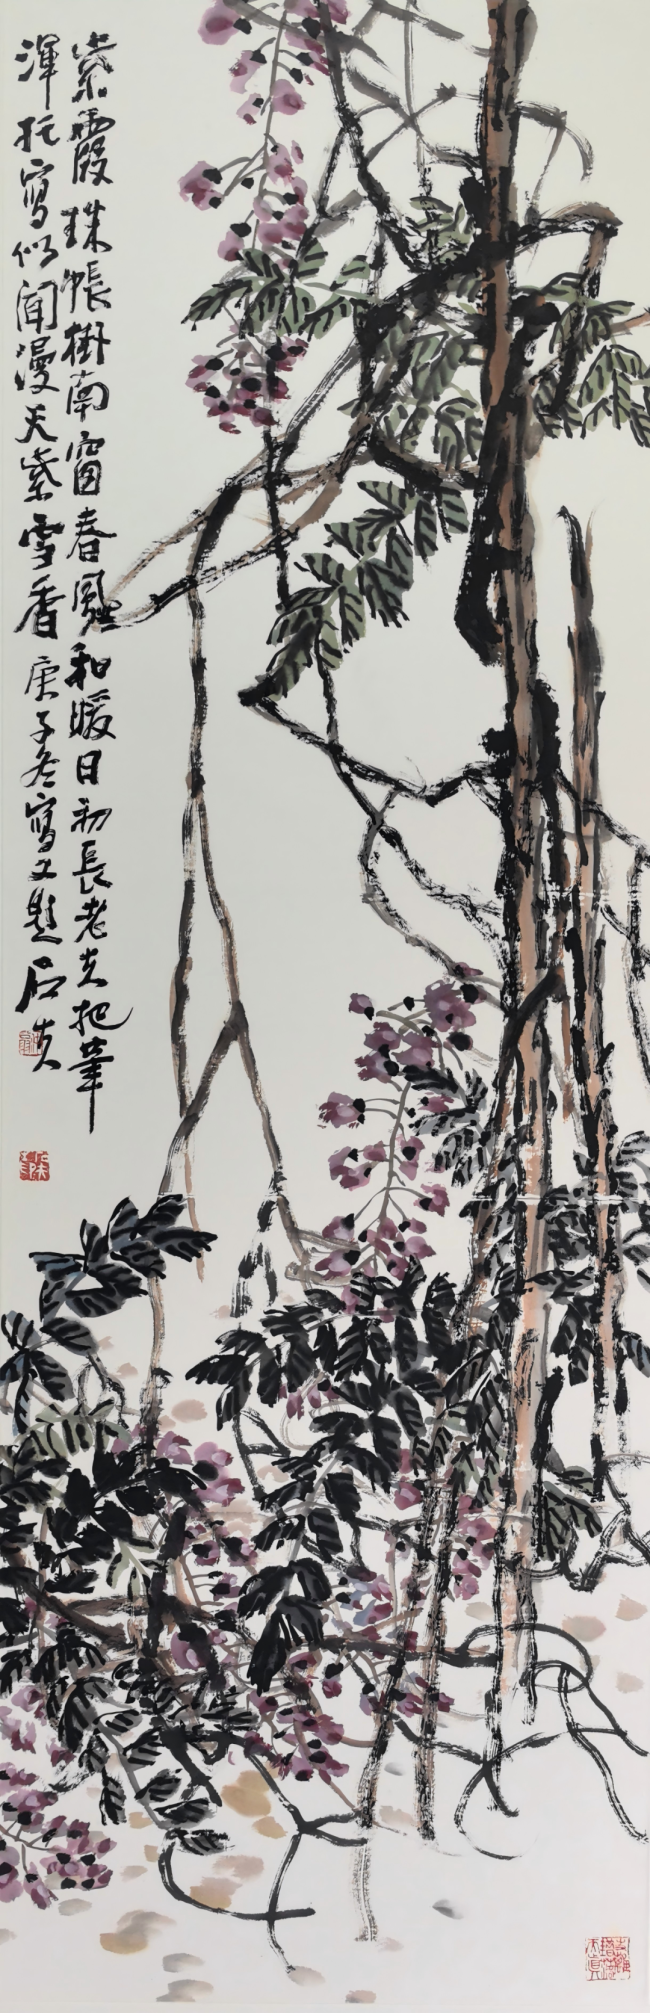 紫霞珠帳掛南窗春風和暖日初長老夫把筆
渾托寫似聞漫天紫雪香庚子冬寫又題石夫